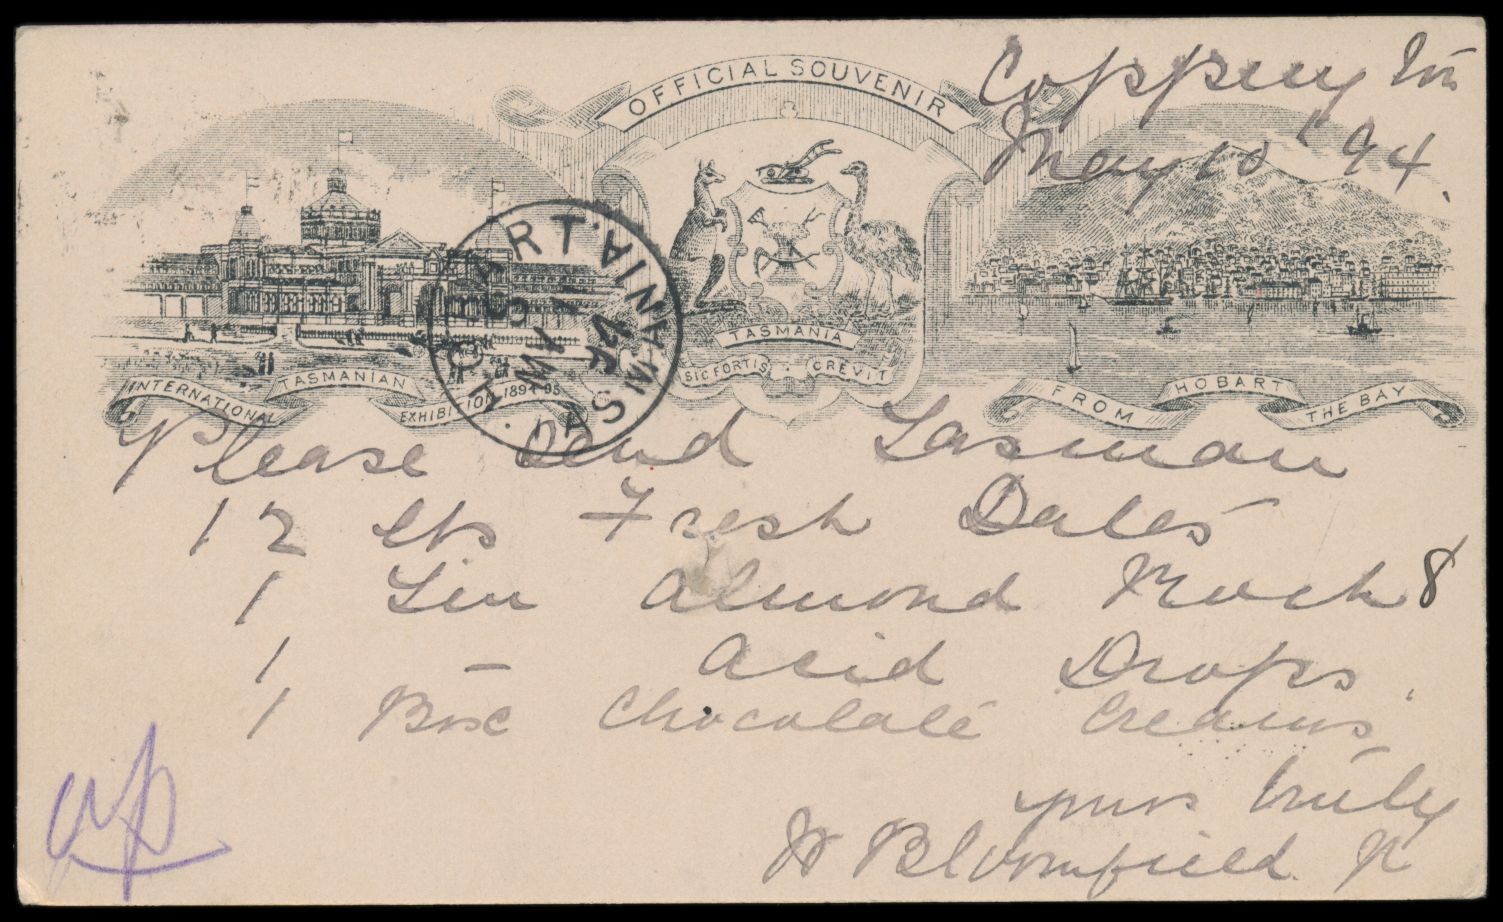 OFFICIAL SOUVENIR
TASMANIA
SIC FORTIS CREVIT
INTERNATIONAL TASMANIAN EXHIBITION 1894-95
FROM HOBART THE BAY
HOBART. TASMANIA
MY 11
94
May 10 94.
Please Send Tasman
12 lbs Fresh Dates
1 Tin Almond Rock 8
1 – Acid Drops.
1 Box Chocolate Creams
yours truly
W Bloomfield Jr